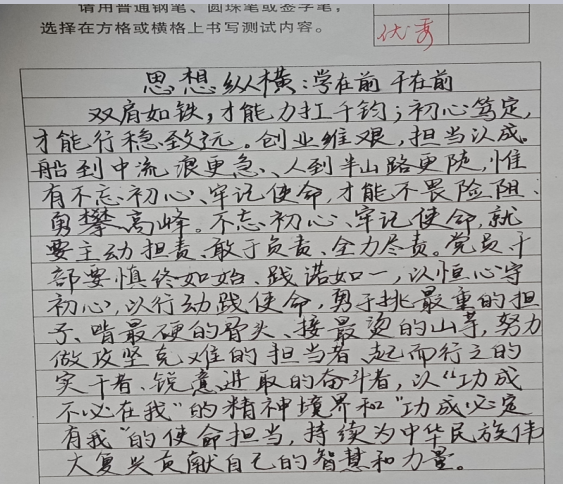 请用普通钢笔、圆珠笔或签字笔，
选择在方格或横格上书写测试内容。
优秀
思想纵横：学在前 干在前
双肩如铁，才能力扛千钧；初心笃定，
才能行稳致远。创业维艰，担当以成。
船到中流浪更急、人到半山路更陡，惟
有不忘初心、牢记使命，才能不畏险阻、
勇攀高峰。不忘初心、牢记使命，就
要主动担责、敢于负责、全力尽责。党员干
部要慎终如始、践诺如一，以恒心守
初心，以行动践使命，勇于挑最重的担
子、啃最硬的骨头、接最烫的山芋，努力
做攻坚克难的担当者、起而行之的
实干者、锐意进取的奋斗者，以“功成
不必在我”的精神境界和“功成必定
有我”的使命担当，持续为中华民族伟
大复兴贡献自己的智慧和力量。